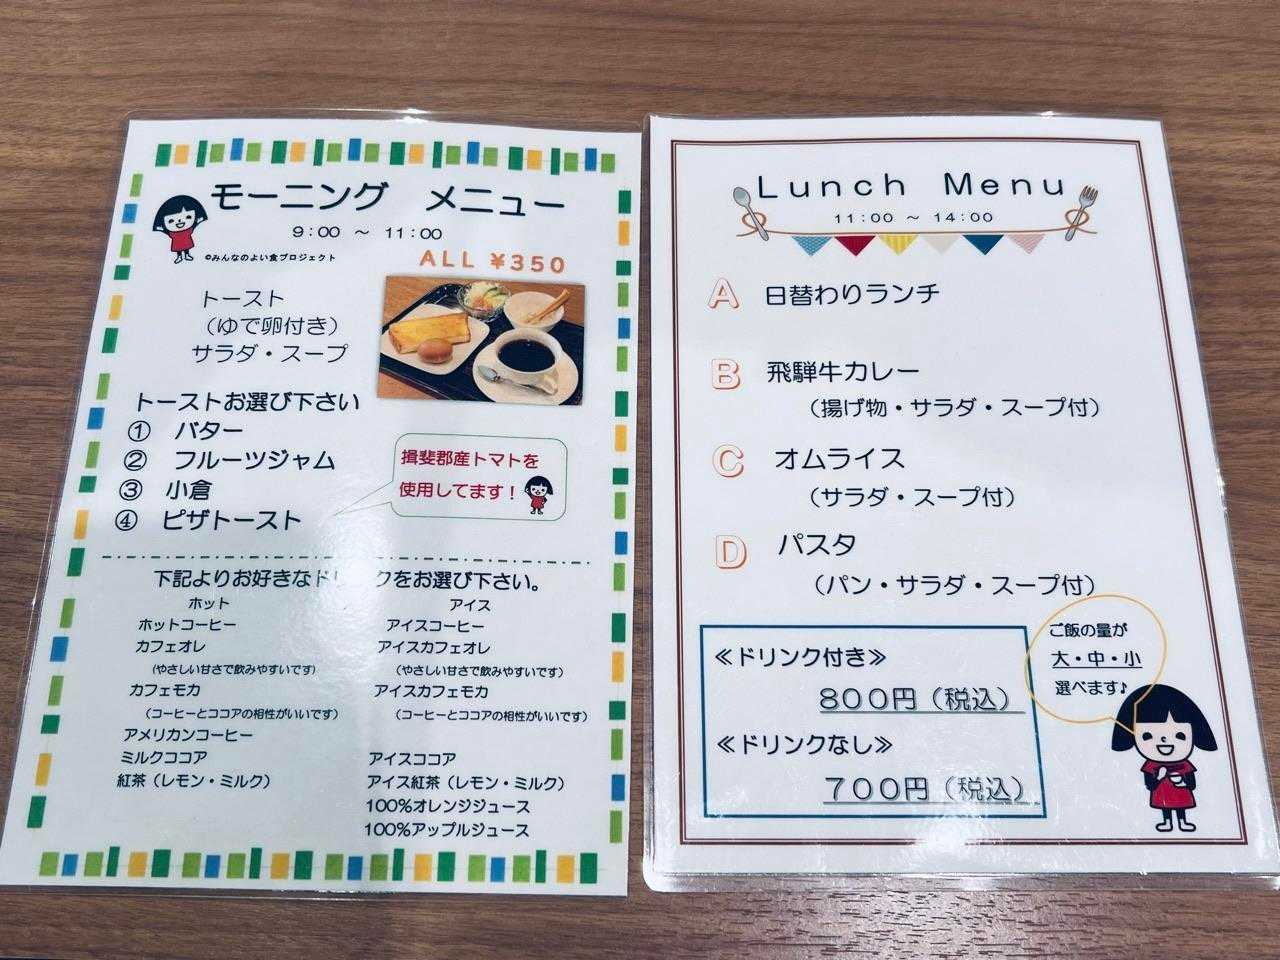 モーニング メニュー
9:00 ～ 11:00
©みんなのよい食プロジェクト
ALL ¥350
トースト
（ゆで卵付き）
サラダ・スープ
トーストお選び下さい
① バター
② フルーツジャム
③ 小倉
④ ピザトースト
揖斐郡産トマトを
使用してます！
下記よりお好きなドリンクをお選び下さい。
ホット
ホットコーヒー
カフェオレ
（やさしい甘さで飲みやすいです）
カフェモカ
（コーヒーとココアの相性がいいです）
アメリカンコーヒー
ミルクココア
紅茶（レモン・ミルク）
アイス
アイスコーヒー
アイスカフェオレ
（やさしい甘さで飲みやすいです）
アイスカフェモカ
（コーヒーとココアの相性がいいです）
アイスココア
アイス紅茶（レモン・ミルク）
100%オレンジジュース
100%アップルジュース
Lunch Menu
11:00 ～ 14:00
A 日替わりランチ
B 飛騨牛カレー
（揚げ物・サラダ・スープ付）
C オムライス
（サラダ・スープ付）
D パスタ
（パン・サラダ・スープ付）
≪ドリンク付き≫
800円（税込）
≪ドリンクなし≫
700円（税込）
ご飯の量が
大・中・小
選べます♪